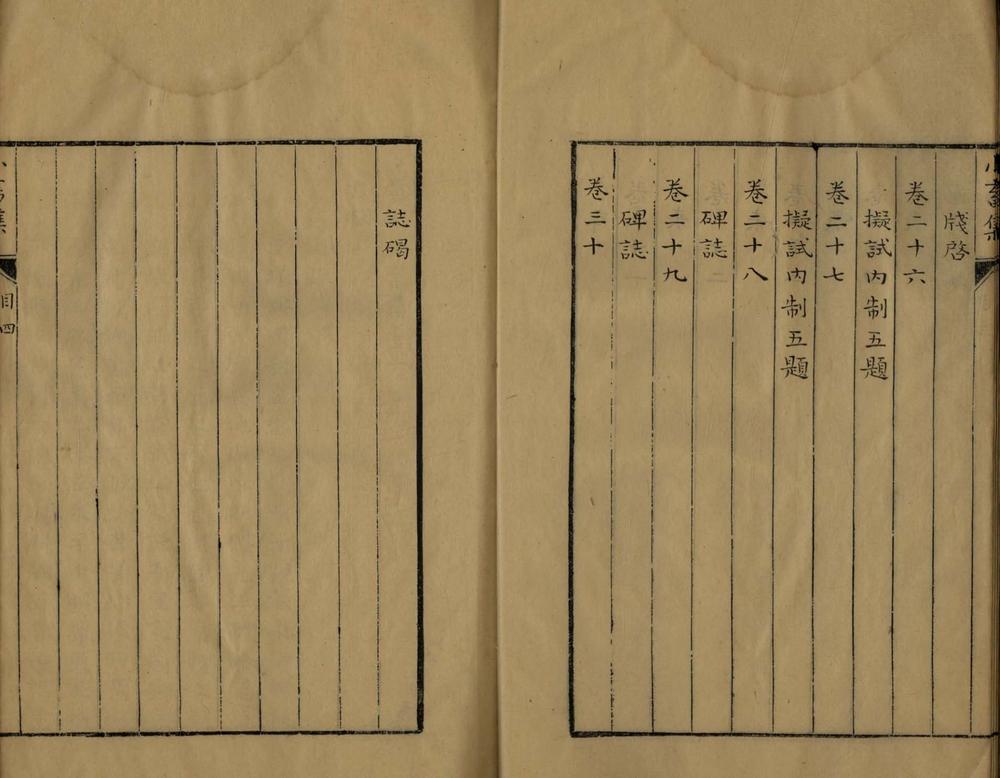 小畜集
牋啓
卷二十六
擬試内制五題
卷二十七
擬試内制五題
卷二十八
碑誌
卷二十九
碑誌
卷三十
誌碣
目四